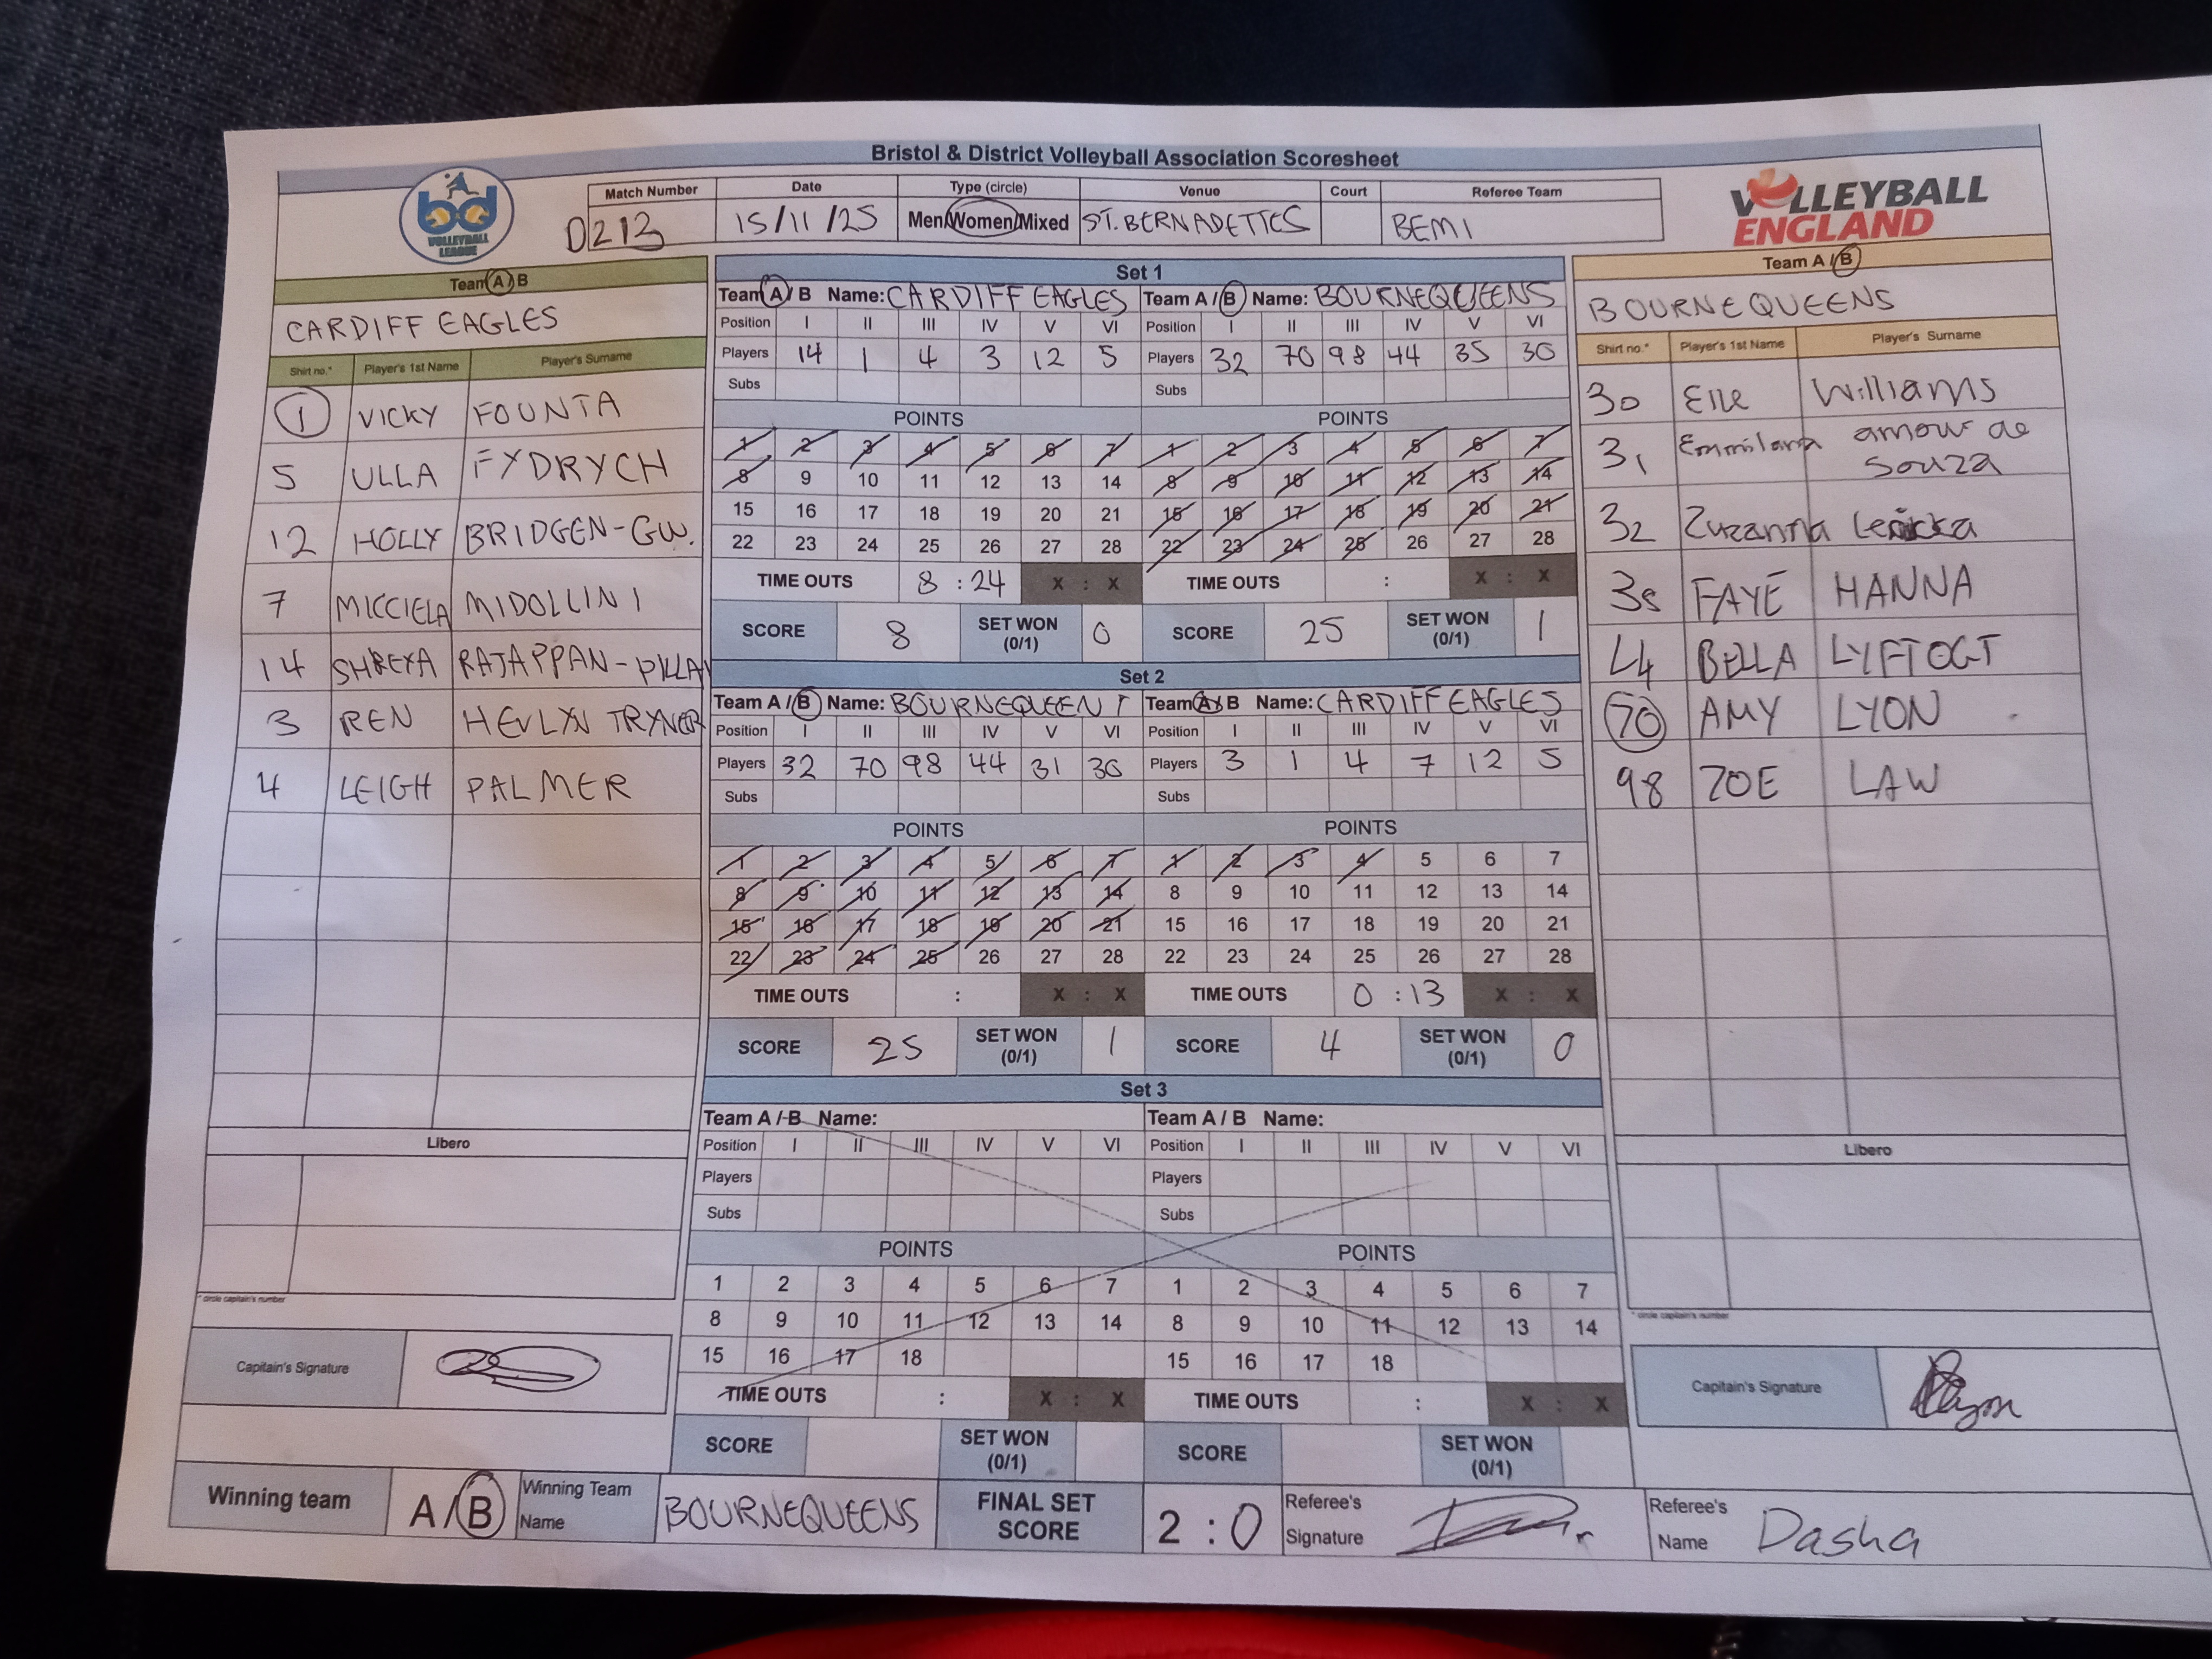 Bristol & District Volleyball Association Scoresheet
bd
VOLLEYBALL
LEAGUE
VOLLEYBALL
ENGLAND
Match Number
Date
Type (circle)
Venue
Court
Referee Team
D213
15/11/25
Men/Women/Mixed
ST. BERNADETTES
BEM1
Team A / B
CARDIFF EAGLES
Shirt no.* Player's 1st Name Player's Surname
1 VICKY FOUNTA
5 ULLA FYDRYCH
12 HOLLY BRIDGEN-GW.
7 MICCIELA MIDOLLINI
14 SHREYA RAJAPPAN-PILLAI
3 REN HEVLYN TRYNER
4 LEIGH PALMER
Libero
* circle captain's number
Capitain's Signature
Set 1
Team A / B Name: CARDIFF EAGLES Team A / B Name: BOURNEQUEENS
Position I II III IV V VI Position I II III IV V VI
Players 14 1 4 3 12 5 Players 32 70 98 44 35 30
Subs Subs
POINTS POINTS
1 2 3 4 5 6 7 1 2 3 4 5 6 7
8 9 10 11 12 13 14 8 9 10 11 12 13 14
15 16 17 18 19 20 21 15 16 17 18 19 20 21
22 23 24 25 26 27 28 22 23 24 25 26 27 28
TIME OUTS 8 : 24 X : X TIME OUTS : X : X
SCORE 8 SET WON (0/1) 0 SCORE 25 SET WON (0/1) 1
Set 2
Team A / B Name: BOURNEQUEEN Team A / B Name: CARDIFF EAGLES
Position I II III IV V VI Position I II III IV V VI
Players 32 70 98 44 31 30 Players 3 1 4 7 12 5
Subs Subs
POINTS POINTS
1 2 3 4 5 6 7 1 2 3 4 5 6 7
8 9 10 11 12 13 14 8 9 10 11 12 13 14
15 16 17 18 19 20 21 15 16 17 18 19 20 21
22 23 24 25 26 27 28 22 23 24 25 26 27 28
TIME OUTS : X : X TIME OUTS 0 : 13 X : X
SCORE 25 SET WON (0/1) 1 SCORE 4 SET WON (0/1) 0
Set 3
Team A / B Name: Team A / B Name:
Position I II III IV V VI Position I II III IV V VI
Players Players
Subs Subs
POINTS POINTS
1 2 3 4 5 6 7 1 2 3 4 5 6 7
8 9 10 11 12 13 14 8 9 10 11 12 13 14
15 16 17 18 15 16 17 18
TIME OUTS : X : X TIME OUTS : X : X
SCORE SET WON (0/1) SCORE SET WON (0/1)
Team A / B
BOURNEQUEENS
Shirt no.* Player's 1st Name Player's Surname
30 Elle Williams
31 amour de
souza
32 Zuzanna
35 FAYE HANNA
44 BELLA LYFTOGT
70 AMY LYON
98 ZOE LAW
Libero
* circle captain's number
Capitain's Signature
Winning team A / B Winning Team Name BOURNEQUEENS FINAL SET SCORE 2 : 0 Referee's Signature Referee's Name Dasha